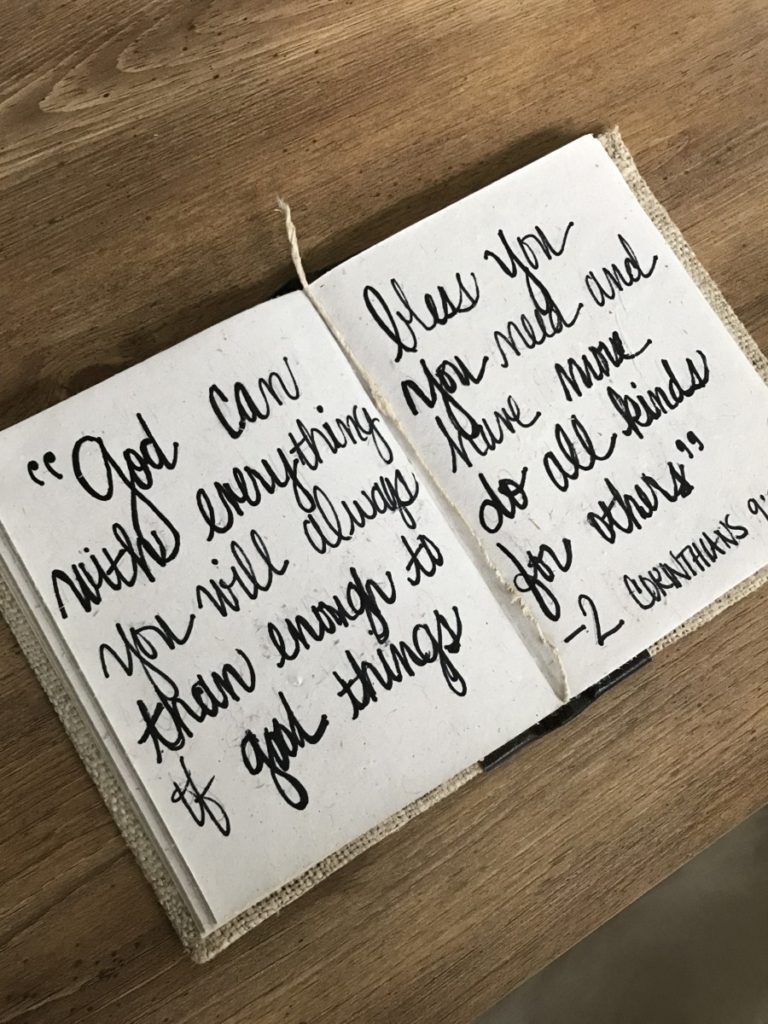 “God can bless you
with everything you need and
you will always have more
than enough to do all kinds
of good things for others”
-2 CORINTHIANS 9: